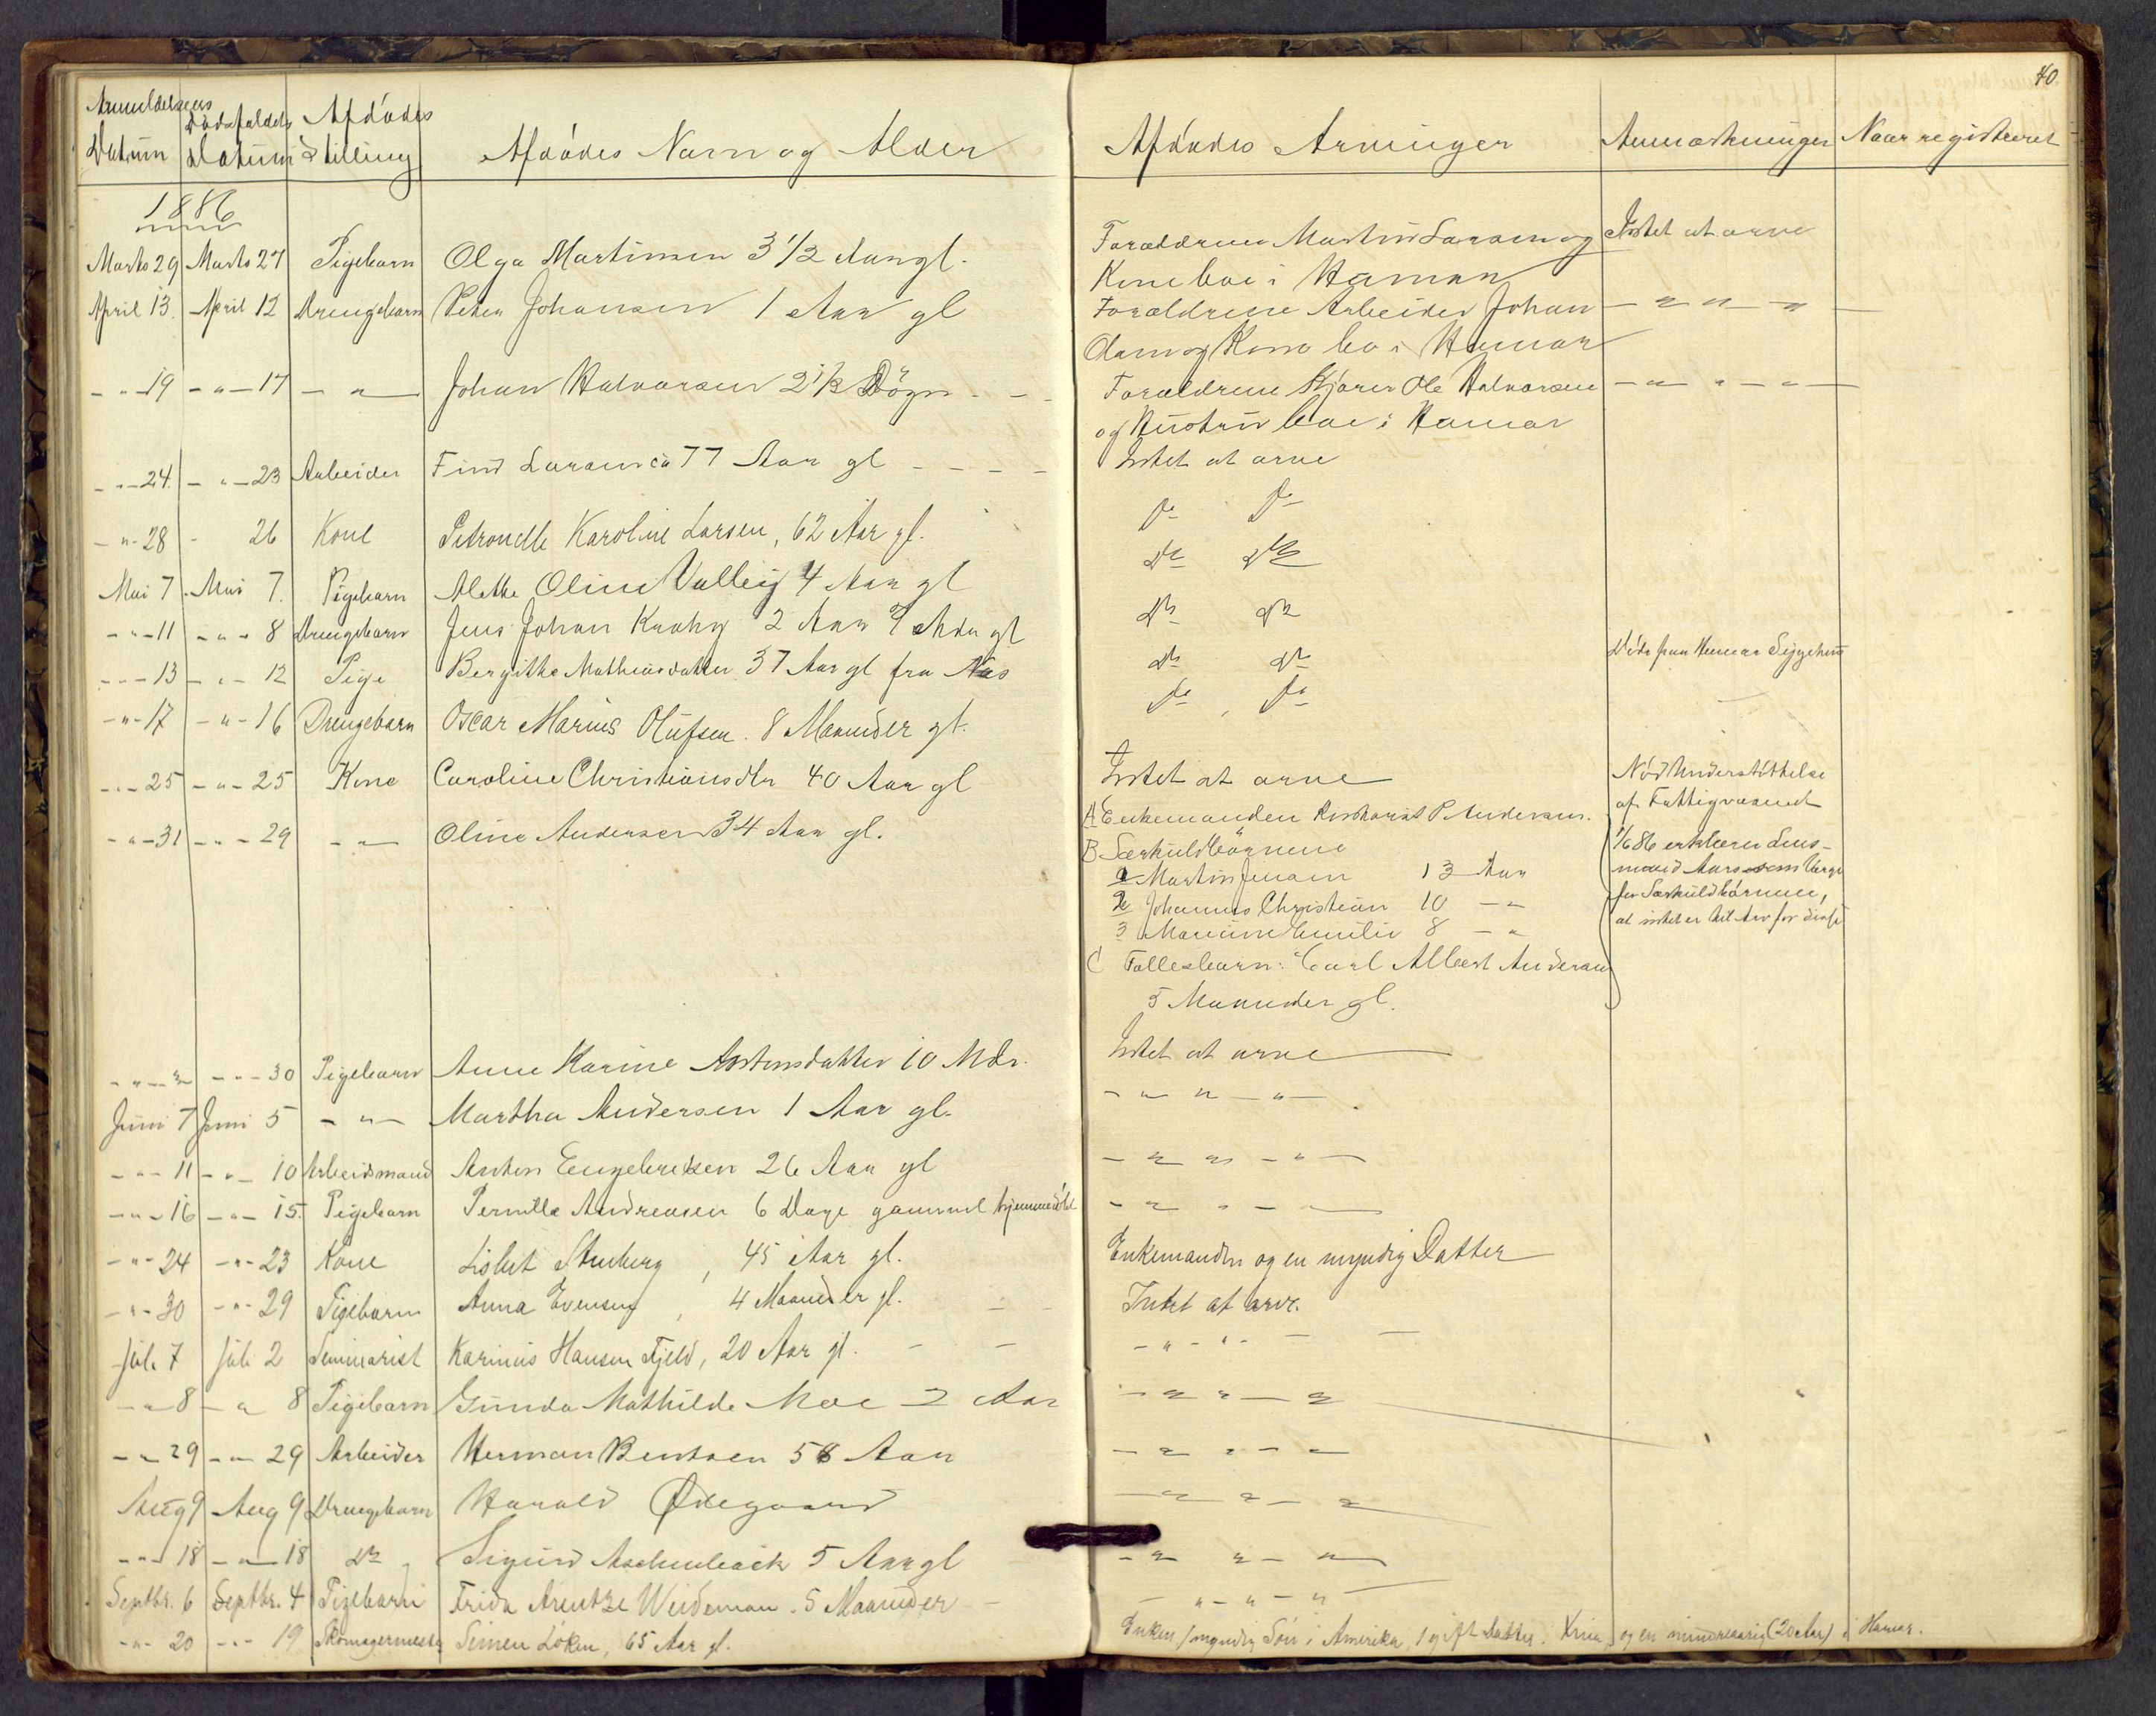 40.
Anmeldelsens Datum Dødsfaldets Datum Afdødes Stilling Afdødes Navn og Alder Afdødes Arvinger Anmærkninger Naar registreret
1886
Marts 29 Marts 27 Pigebarn Olga Martinsen 3 1/2 Aar gl. Forældrene Martin Larsen og Intet at arve
Kone boe i Hamar
April 13. April 12 Drengebarn Peter Johansen 1 Aar gl Forældrene Arbeider Johan — " " — " —
Olsen og Kone bo i Hamar
- " - 19 - " - 17 - " - Johan Halvorsen 2 1/2 Døgn - - Forældrene Kjører Ole Halvorsen — " " — " —
og Hustru boe i Hamar
- " - 24. - " - 23 Arbeider Find Larsen ca 77 Aar gl - - - - Intet at arve
- " - 28 - 26 Kone Petronelle Karoline Larsen, 62 Aar gl. do do
Mai 7. Mai 7. Pigebarn Alethe Oline Valley 4 Aar gl do do
- " - 11 - " - 8 Drengebarn Jens Johan Krohg 2 Aar 9 Mdr gl do do
- " - 13 - " - 12 Pige Bergitte Mathiasdatter 37 Aar gl fra Næs do do Døde paa Hamar Sygehus
- " - 17 - " - 16 Drengebarn Oscar Marius Olufsen. 8 Maaneder gl. do do
- " - 25 - " - 25 Kone Caroline Christiansdtr 40 Aar gl Intet at arve Nød Understøttelse
af Fattigvæsenet
- " - 31 - " - 29 - " - Oline Andersen 34 Aar gl. A Enkemanden P. Andersen.
B Særkuldbørnene 1/6 86 erklærer Lens-
1 Martin Jensen 13 Aar mand Aars som Værge
2 Johannes Christian 10 - " for Særkuldbørnene,
3 Mariane Emilie 8 - " at intet er bit Arv for disse
C Fællesbarn: Carl Albert Andersen
5 Maaneder gl.
- " - " - " - 30 Pigebarn Anne Karine Antonsdatter 10 Mdr. Intet at arve
Juni 7 Juni 5 - " - Martha Andersen 1 Aar gl. - " " - " -
- " - 11 - " - 10 Arbeidsmand Anton Engebretsen 26 Aar gl - " " - " -
- " - 16 - " - 15. Pigebarn Pernille Andreasen 6 Dage gammel hjemmedøbt - " " - "
- " - 24 - " - 23 Kone Lisbet Stenberg, 45 Aar gl. Enkemanden og en myndig Datter
- " - 30 - " - 29 Pigebarn Anna Evensen, 4 Maaneder gl. Intet at arve.
Juli 7 Juli 2 Seminarist Karinius Hansen Fjeld, 20 Aar gl. - " - " -
- " 8 - " 8 Pigebarn Gunda Mathilde Moe 2 Aar - " " - "
- " 29 - " 29 Arbeider Herman Bentsen 58 Aar - " " - "
Aug 9 Aug 9 Drengebarn Harald Ødegaard - " " - "
- " - 18 - " - 18 do Sigurd Aschenback 5 Aar gl - " " - "
Septbr. 6 Septbr. 4 Pigebarn Frida Arentze Weideman. 5 Maaneder - " - " - "
- " - 20 - " - 19 Skomagermester Simen Løken, 65 Aar gl. Enken, 1 myndig Søn i Amerika, 1 gift Datter i Xnia og en mindreaarig (20 Aar) i Hamar.